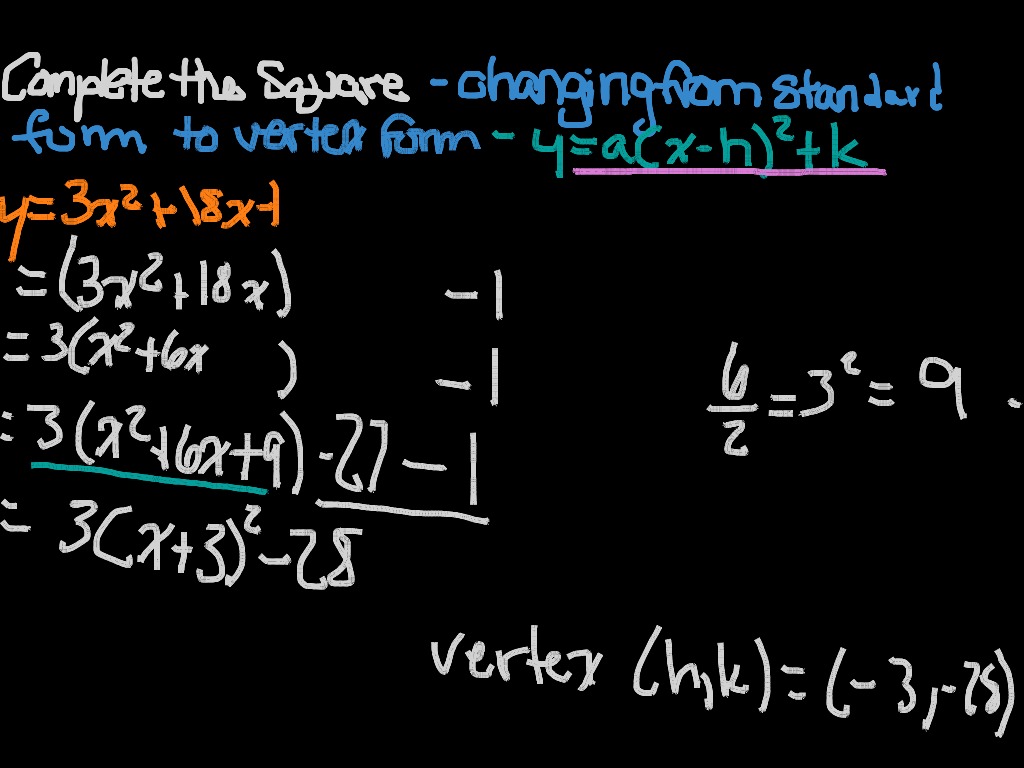 Complete the Square - changing from standard
form to vertex form - y=a(x-h)²+k
y=3x²+18x-1
=(3x²+18x) -1
=3(x²+6x ) -1
6/2=3²=9 -
=3(x²+6x+9)-27-1
=3(x+3)²-28
vertex (h,k)=(-3,-28)